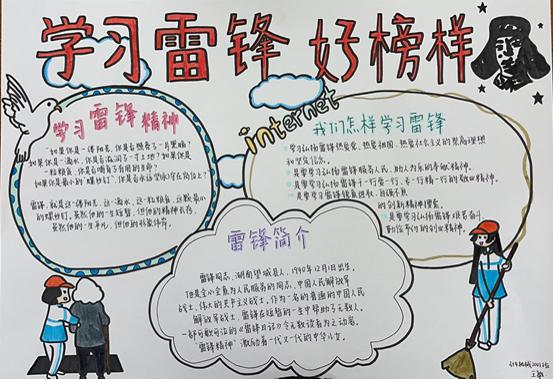 学习雷锋 好榜样
学习雷锋精神
"如果你是一滴阳光,你是否照亮了一片黑暗?
如果你是一滴水,你是否滋润了一寸土地?如果你是
一粒粮食,你是否哺育了有用的生命?
如果你是最小的"螺丝钉",你是否永远坚守在岗位上?"
雷锋,就是这一缕阳光,这一滴水,这一粒粮食,这颗最小
的螺丝钉,虽然他的一生短暂,但他的精神长存,
虽然他的一生平凡,但他的形象伟岸。
internet
我们怎样学习雷锋
学习弘扬雷锋热爱党、热爱祖国、热爱社会主义的崇高理想
和坚定信念。
是要学习弘扬雷锋服务人民、助人为乐的奉献精神。
是要学习弘扬雷锋干一行爱一行、专一行精一行的敬业精神。
是要学习雷锋锐意进取、自强不息
的创新精神。
是要学习弘扬雷锋艰苦奋斗、
勤俭节约的创业精神。
雷锋简介
雷锋同志,湖南望城县人,1940年12月18日出生。
他是全心全意为人民服务的同志,中国人民解放军
战士,伟大的共产主义战士,作为一名普通的中国人民
解放军战士,雷锋在短暂的一生中帮助了无数人。
一部可歌可泣的《雷锋日记》令无数读者为之动容。
"雷锋精神"激励着一代又一代的中华儿女。